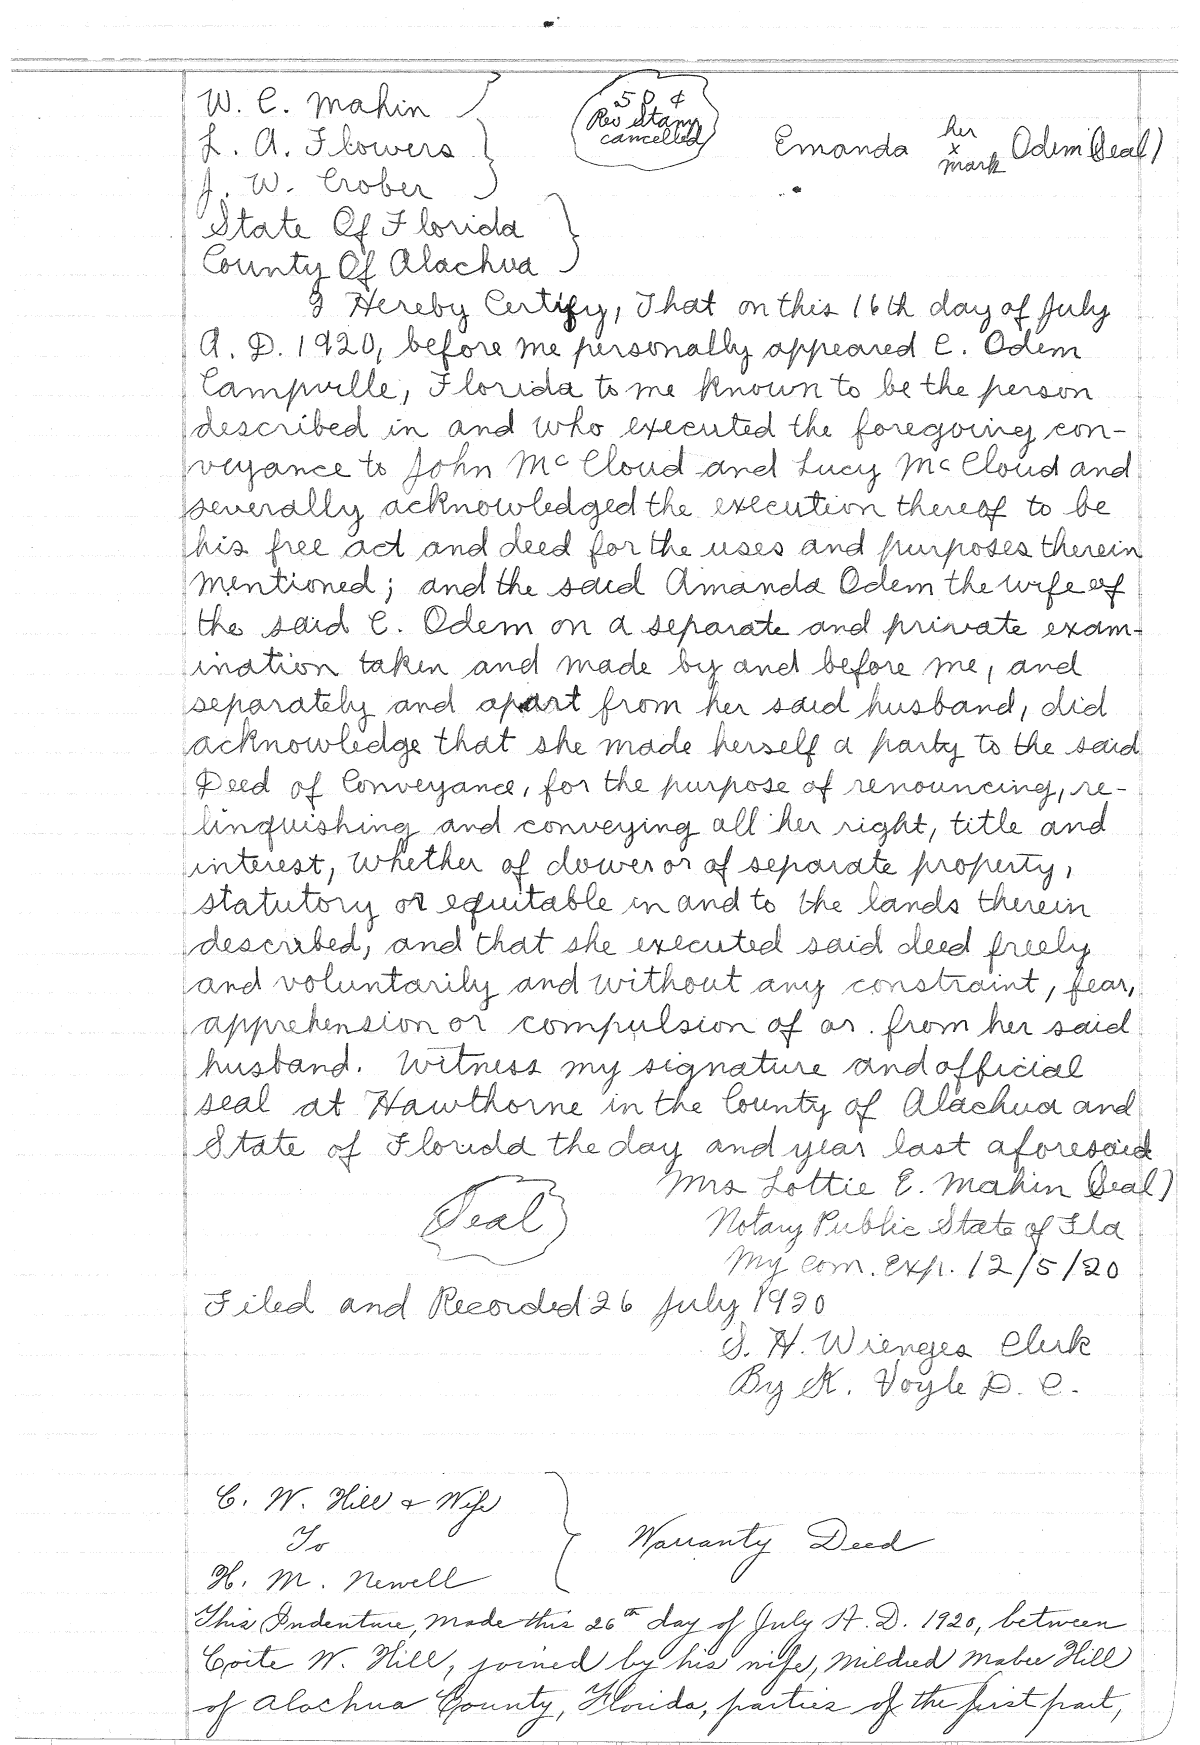 W. C. Mahin
L. A. Flowers
J. W. Crober
50 ¢
Rev Stamp
cancelled
Emanda her x mark Odem (Seal)
State Of Florida
County Of Alachua
I Hereby Certify, That on this 16th day of July
A. D. 1920, before me personally appeared C. Odem
Campville, Florida to me known to be the person
described in and who executed the foregoing con-
veyance to John McCloud and Lucy McCloud and
severally acknowledged the execution thereof to be
his free act and deed for the uses and purposes therein
mentioned; and the said Amanda Odem the wife of
the said C. Odem on a separate and private exam-
ination taken and made by and before me, and
separately and apart from her said husband, did
acknowledge that she made herself a party to the said
Deed of Conveyance, for the purpose of renouncing, re-
linquishing and conveying all her right, title and
interest, whether of dower or of separate property,
statutory or equitable in and to the lands therein
described, and that she executed said deed freely
and voluntarily and without any constraint, fear,
apprehension or compulsion of or from her said
husband. Witness my signature and official
seal at Hawthorne in the County of Alachua and
State of Florida the day and year last aforesaid
Mrs Lottie E. Mahin (Seal)
Seal
Notary Public State of Fla
My com. Exp. 12/5/20
Filed and Recorded 26 July 1920
S. H. Wienges Clerk
By K. Voyle D. C.
C. W. Hill & Wife
To
H. M. Newell
Warranty Deed
This Indenture, Made this 26th day of July A. D. 1920, between
Coite W. Hill, joined by his wife, Mildred Mabee Hill
of Alachua County, Florida, parties of the first part,